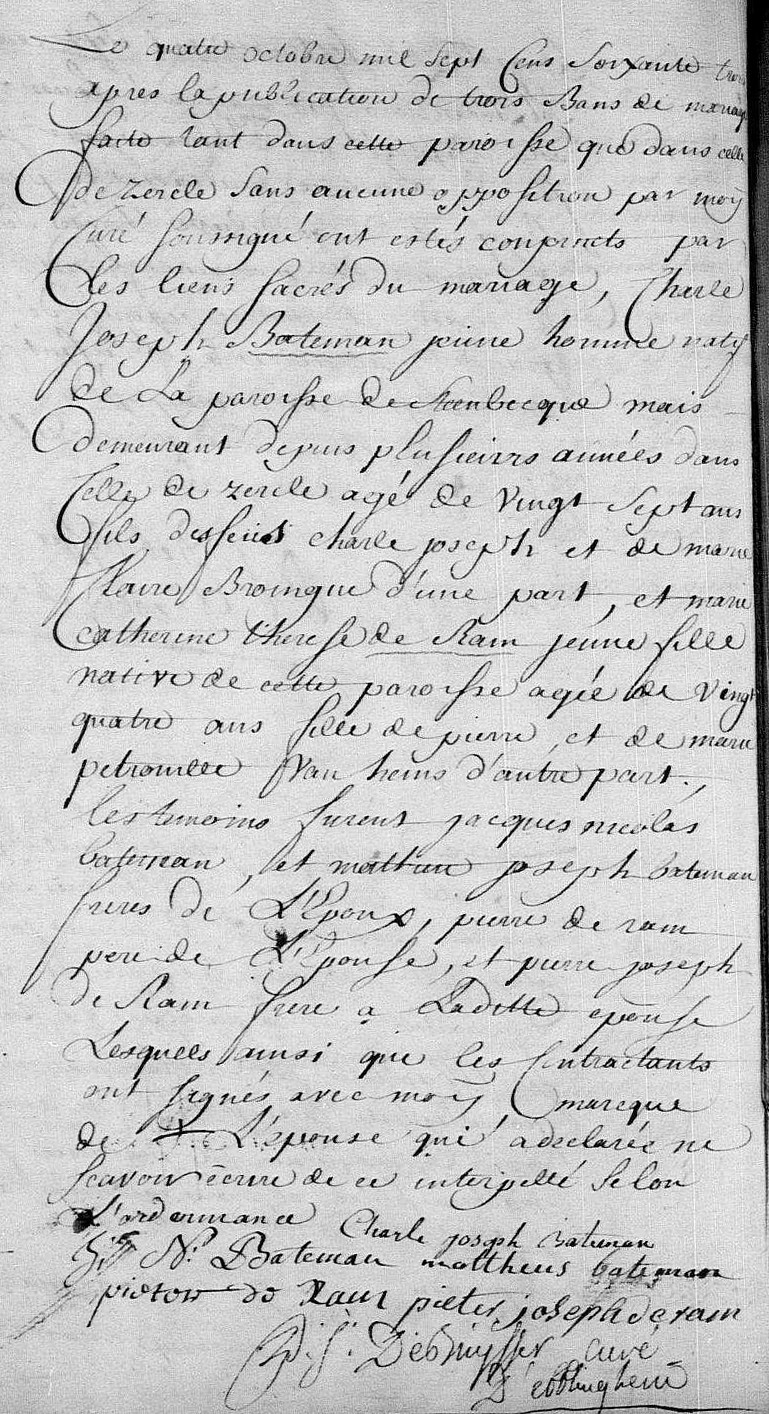 Le quatre octobre mil sept Cens Soixante trois
apres la publication de trois Bans de mariage
faite tant dans cette paroisse que dans celle
de zercle Sans aucune opposition par moÿ
Curé soussigné ont estés conjoincts par
les liens sacrés du mariage, Charle
Joseph Bateman jeune homme natif
de La paroisse de Steenbecque mais
demeurant depuis plusieurs années dans
Celle de zercle agé de vingt Sept ans
fils desfeus charle joseph et de marie
Claire Broingue d'une part, et marie
Catherine therese de Ram jeune fille
native de cette paroisse agée de vingt
quatre ans fille de pierre, et de marie
petronille Van heins d'autre part.,
les temoins furent jacques nicolas
bateman, et mathieu joseph bateman
freres de L'Epoux, pierre de ram
pere de L'Epouse, et pierre joseph
de Ram frere a Laditte epouse
Lesquels ainsi que les Contractants
ont signés avec moÿ marcque
de + L'épouse qui a declarée ne
scavoir ecrire de ce interpellé selon
L'ordonnance Charle joseph Bateman
N: Bateman mattheus bateman
pieter de Ram pieter joseph de ram
Debruysser curé
D'ebblinghem